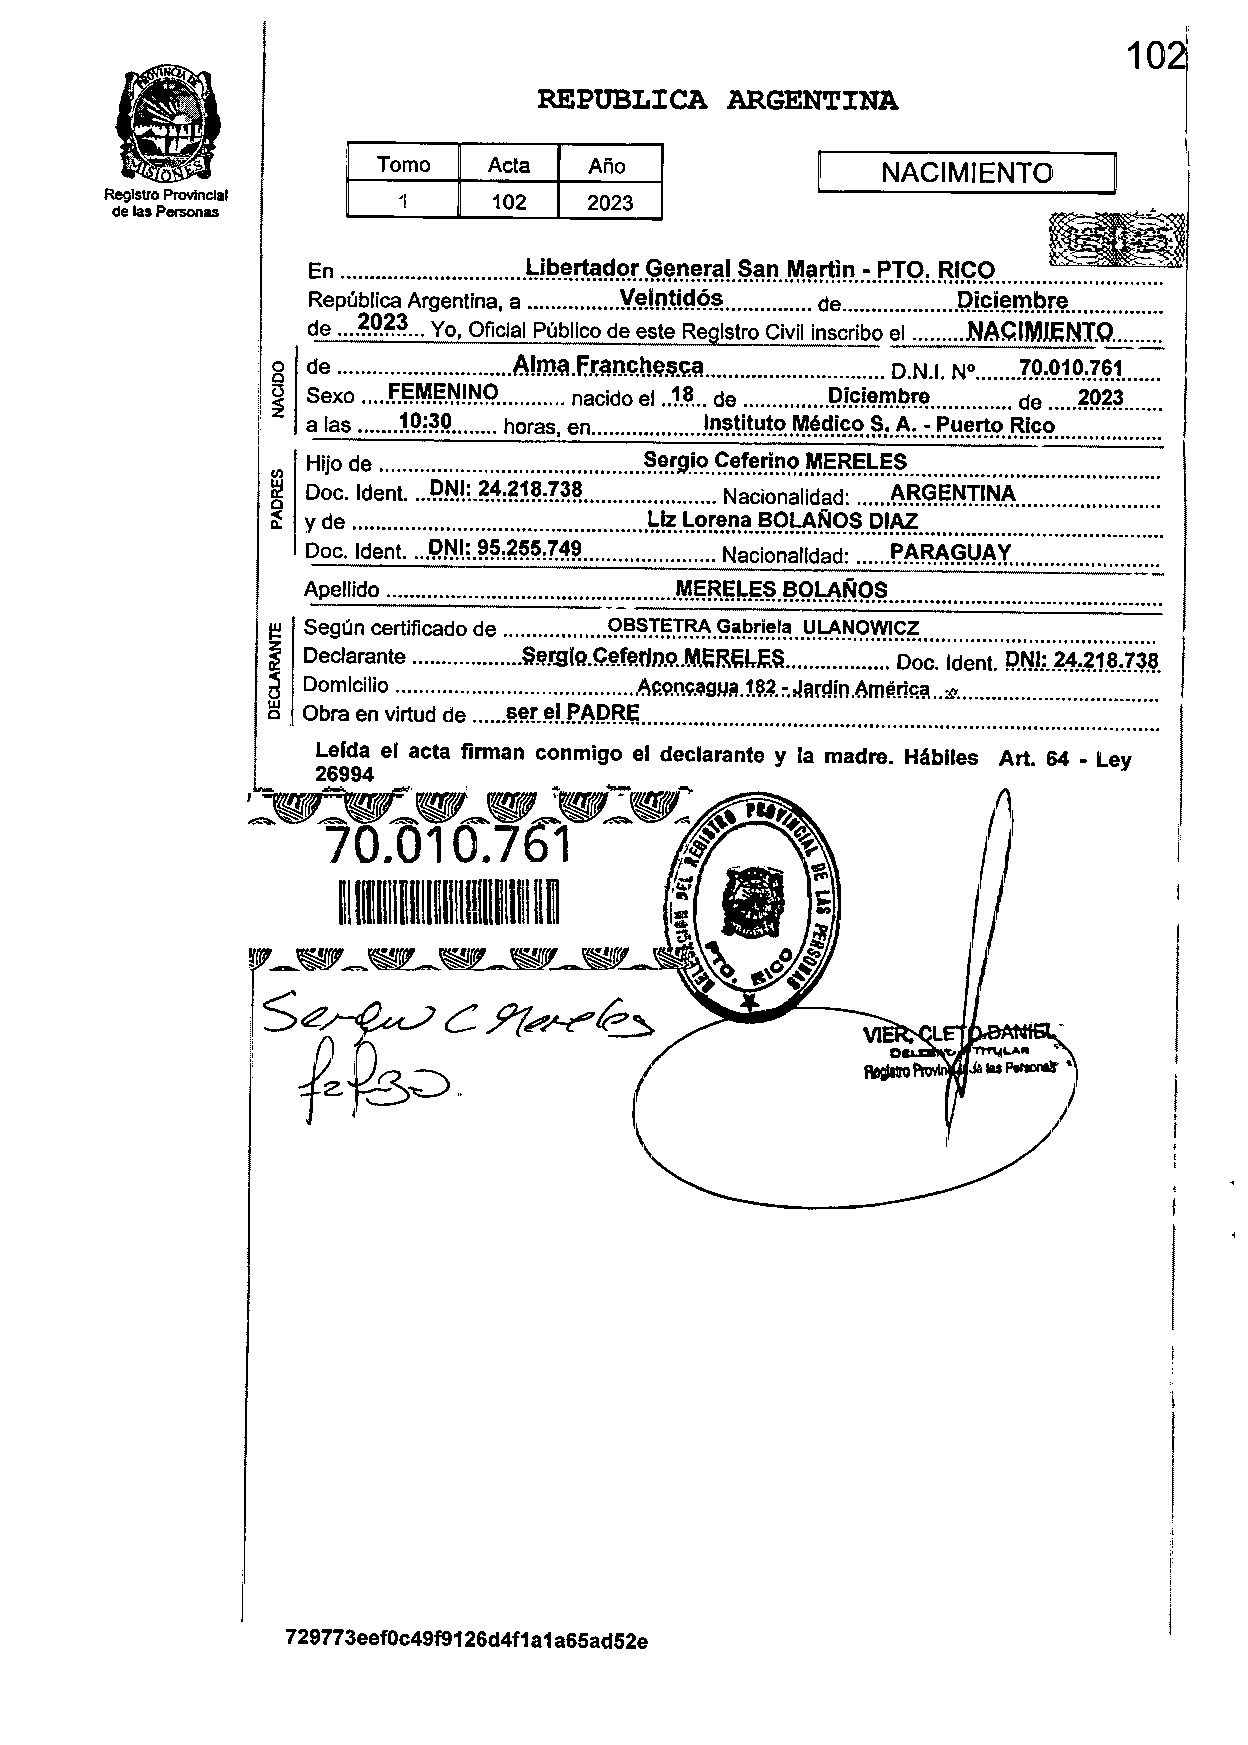 102
PROVINCIA DE
MISIONES
Registro Provincial
de las Personas
REPUBLICA ARGENTINA
Tomo Acta Año
1 102 2023
NACIMIENTO
En Libertador General San Martin - PTO. RICO
República Argentina, a Veintidós de Diciembre
de 2023 Yo, Oficial Público de este Registro Civil inscribo el NACIMIENTO
NACIDO
de Alma Franchesca D.N.I. Nº 70.010.761
Sexo FEMENINO nacido el 18 de Diciembre de 2023
a las 10:30 horas, en Instituto Médico S. A. - Puerto Rico
PADRES
Hijo de Sergio Ceferino MERELES
Doc. Ident. DNI: 24.218.738 Nacionalidad: ARGENTINA
y de Liz Lorena BOLAÑOS DIAZ
Doc. Ident. DNI: 95.255.749 Nacionalidad: PARAGUAY
Apellido MERELES BOLAÑOS
DECLARANTE
Según certificado de OBSTETRA Gabriela ULANOWICZ
Declarante Sergio Ceferino MERELES Doc. Ident. DNI: 24.218.738
Domicilio Aconcagua 182 - Jardín América
Obra en virtud de ser el PADRE
Leída el acta firman conmigo el declarante y la madre. Hábiles Art. 64 - Ley
26994
70.010.761
DELEGACION DEL REGISTRO PROVINCIAL DE LAS PERSONAS
PTO. RICO
Sergio C Mereles
VIER, CLETO DANIEL
DELEGADO TITULAR
Registro Provincial de las Personas
729773eef0c49f9126d4f1a1a65ad52e